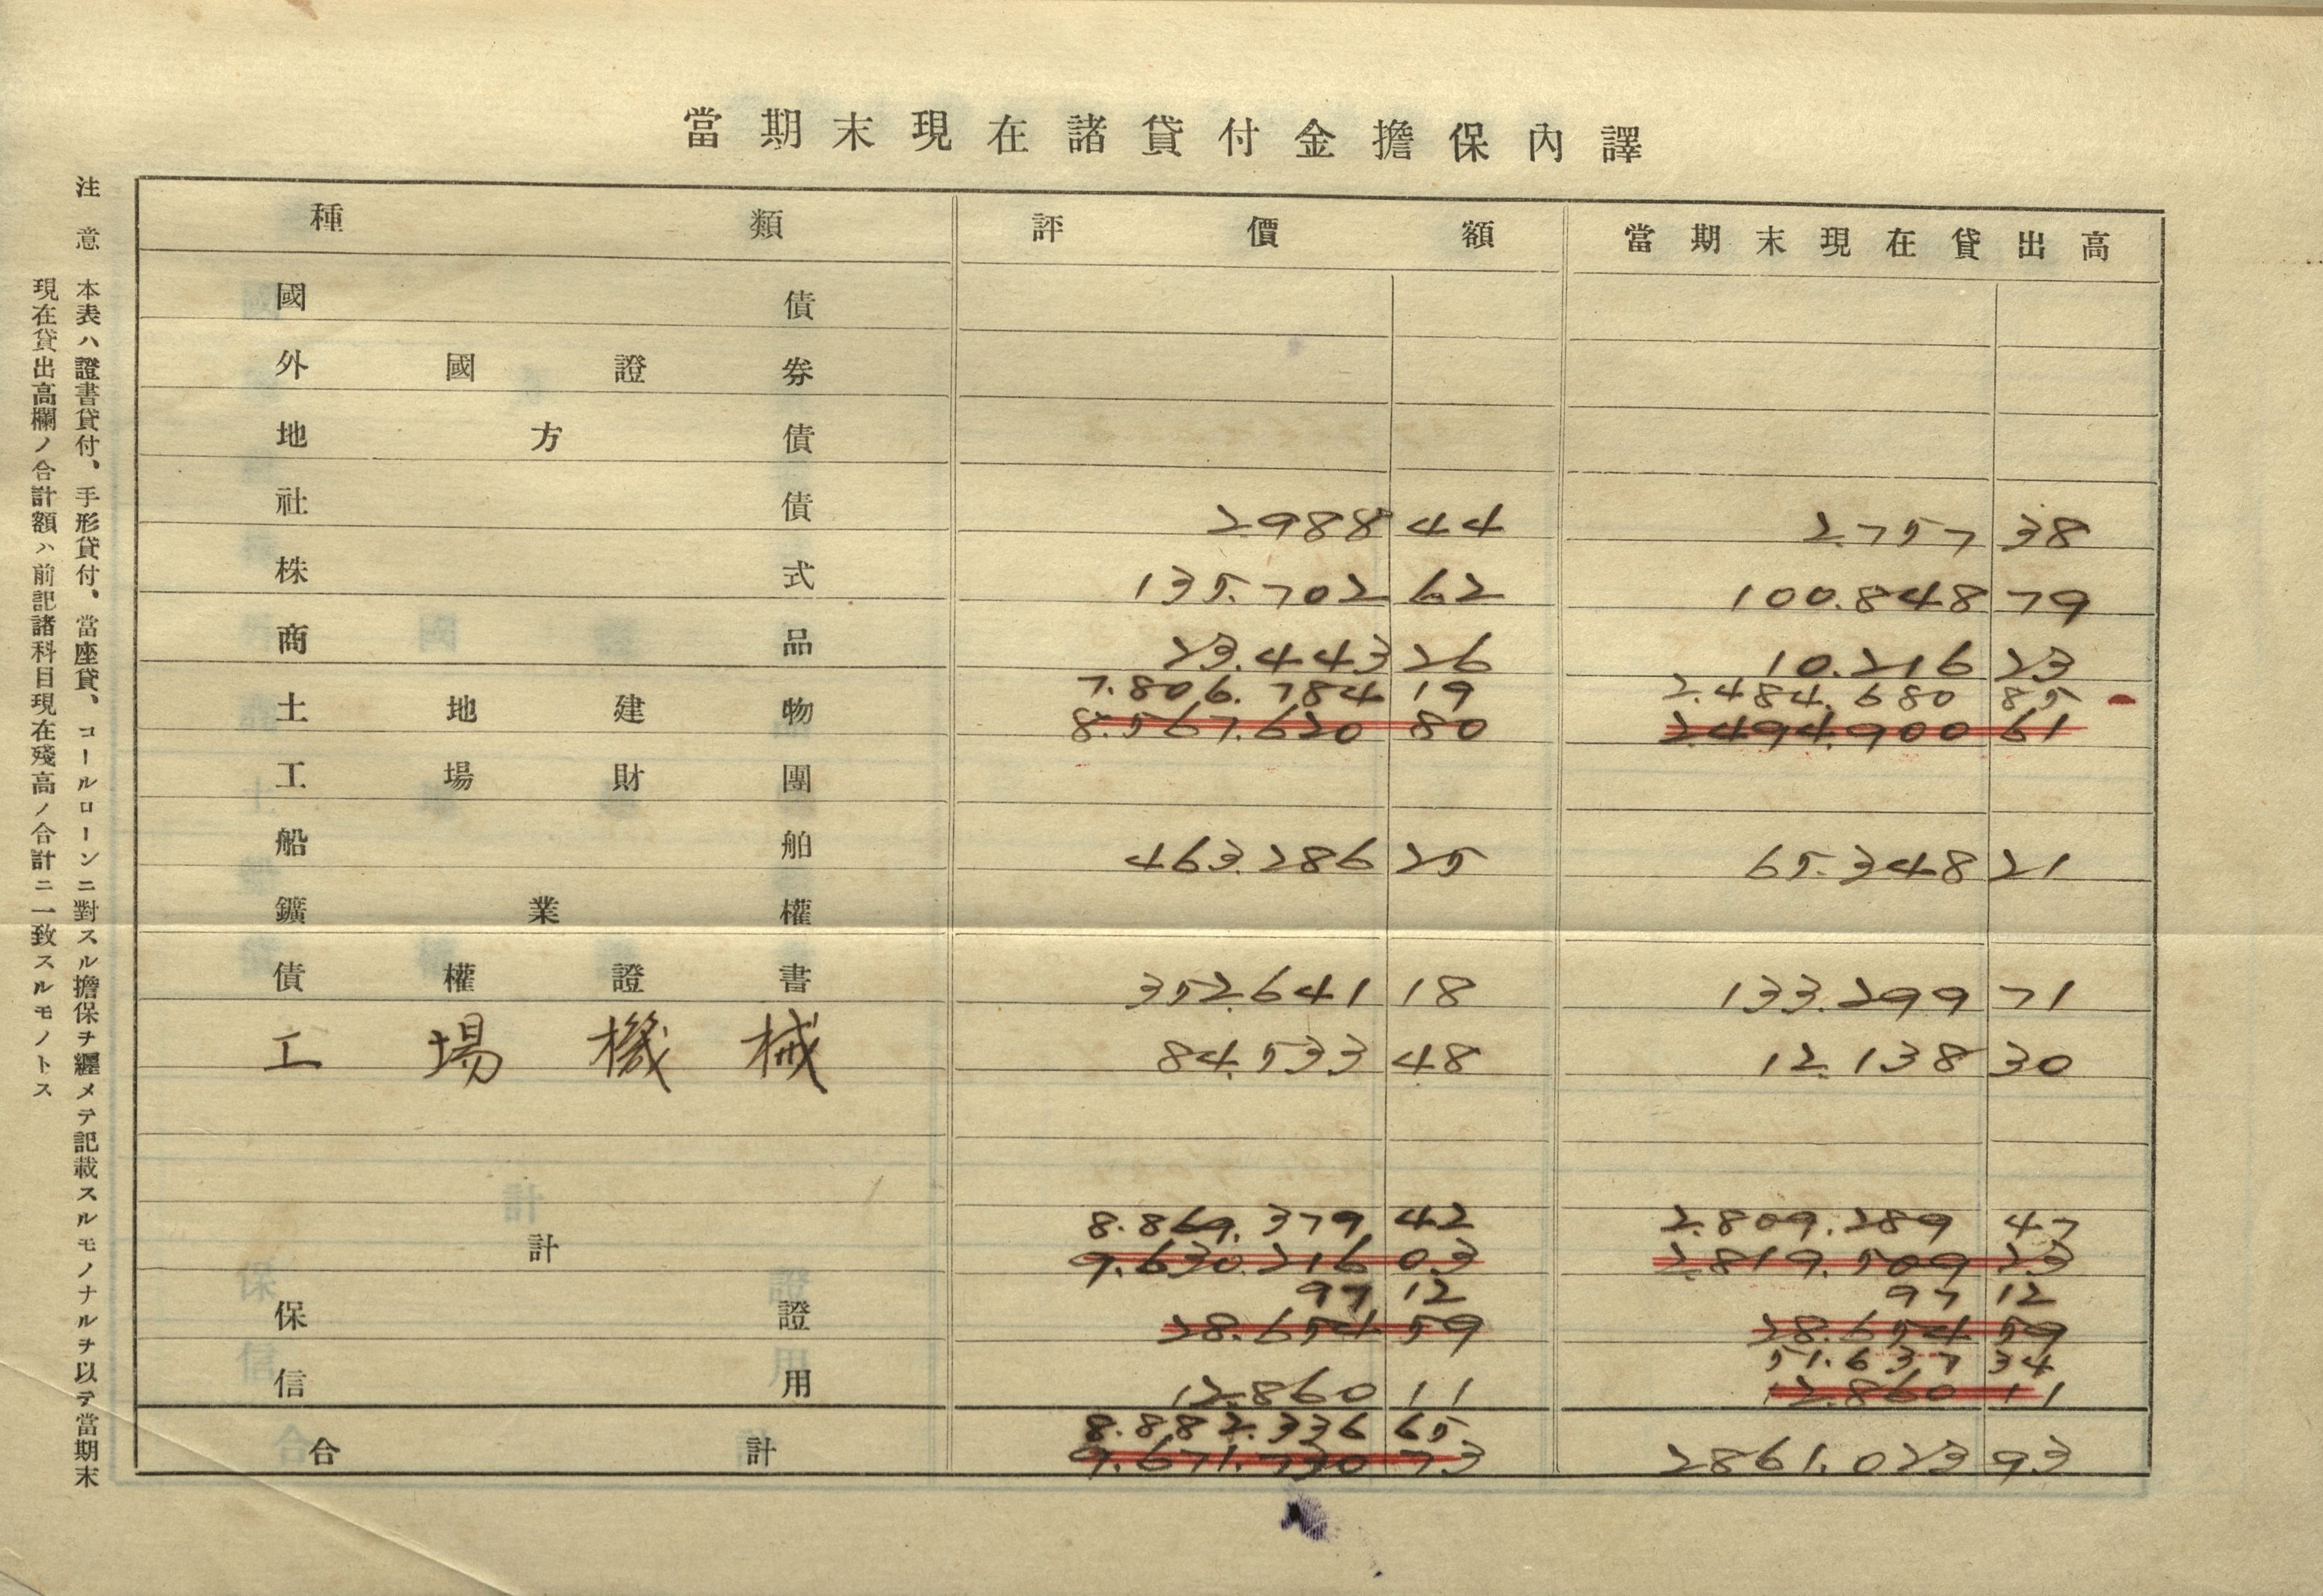 當期末現在諸貸付金擔保內譯
種類 評價額 當期末現在貸出高
國債
外國證券
地方債
社債 2988 44 2.757 38
株式 135.702 62 100.848 79
商品 23.443 26 10.216 23
7.806.784 19 2.484.680 85
土地建物 8.567.620 80 2.494.900 61
工場財團
船舶 463.286 25 65.348 21
鑛業權
債權證書 352.641 18 133.299 71
工場機械 84.533 48 12.138 30
8.869.379 42 2.809.289 47
計 9.630.216 03 2.819.509 23
97 12 97 12
保證 28.654 59 28.654 59
51.637 34
信用 12.860 11 12.860 11
8.882.336 65
合計 9.671.730 73 2861.023 93
注意 本表ハ證書貸付、手形貸付、當座貸、コールローンニ對スル擔保ヲ纒メテ記載スルモノナルヲ以テ當期末
現在貸出高欄ノ合計額ハ前記諸科目現在殘高ノ合計ニ一致スルモノトス